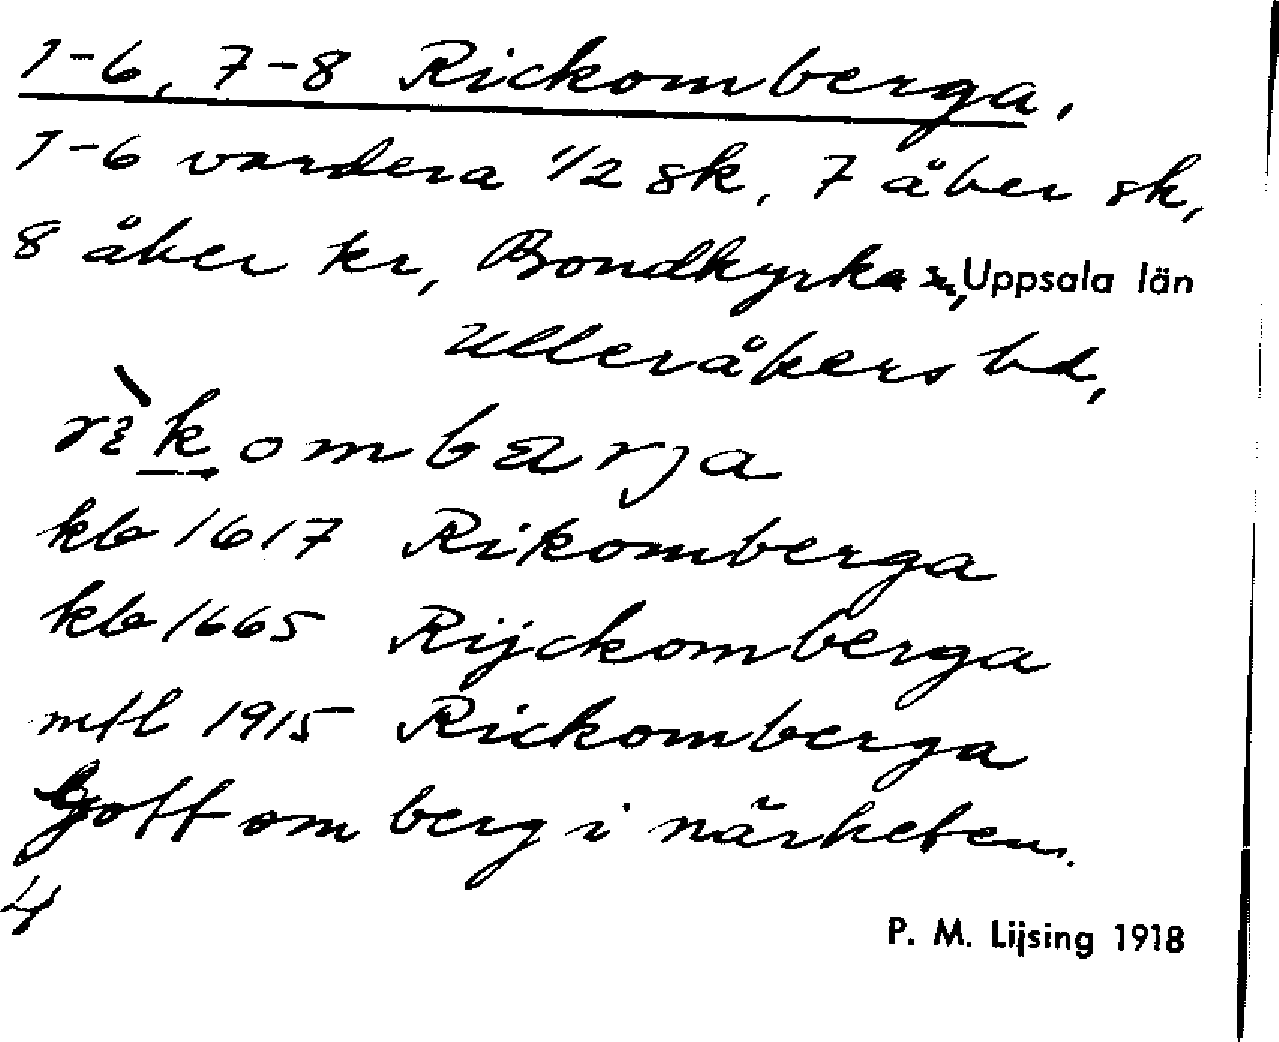 1-6, 7-8 Rickomberga,
1-6 vardera 1/2 sk, 7 åber sk,
8 åber kr, Bondkyrka sn, Uppsala län
Ulleråkers hd,
rìkombarja
kb 1617 Rikomberga
kb 1665 Rijckomberga
mtl 1915 Rickomberga
Gott om berg i närheten.
4
P. M. Lijsing 1918